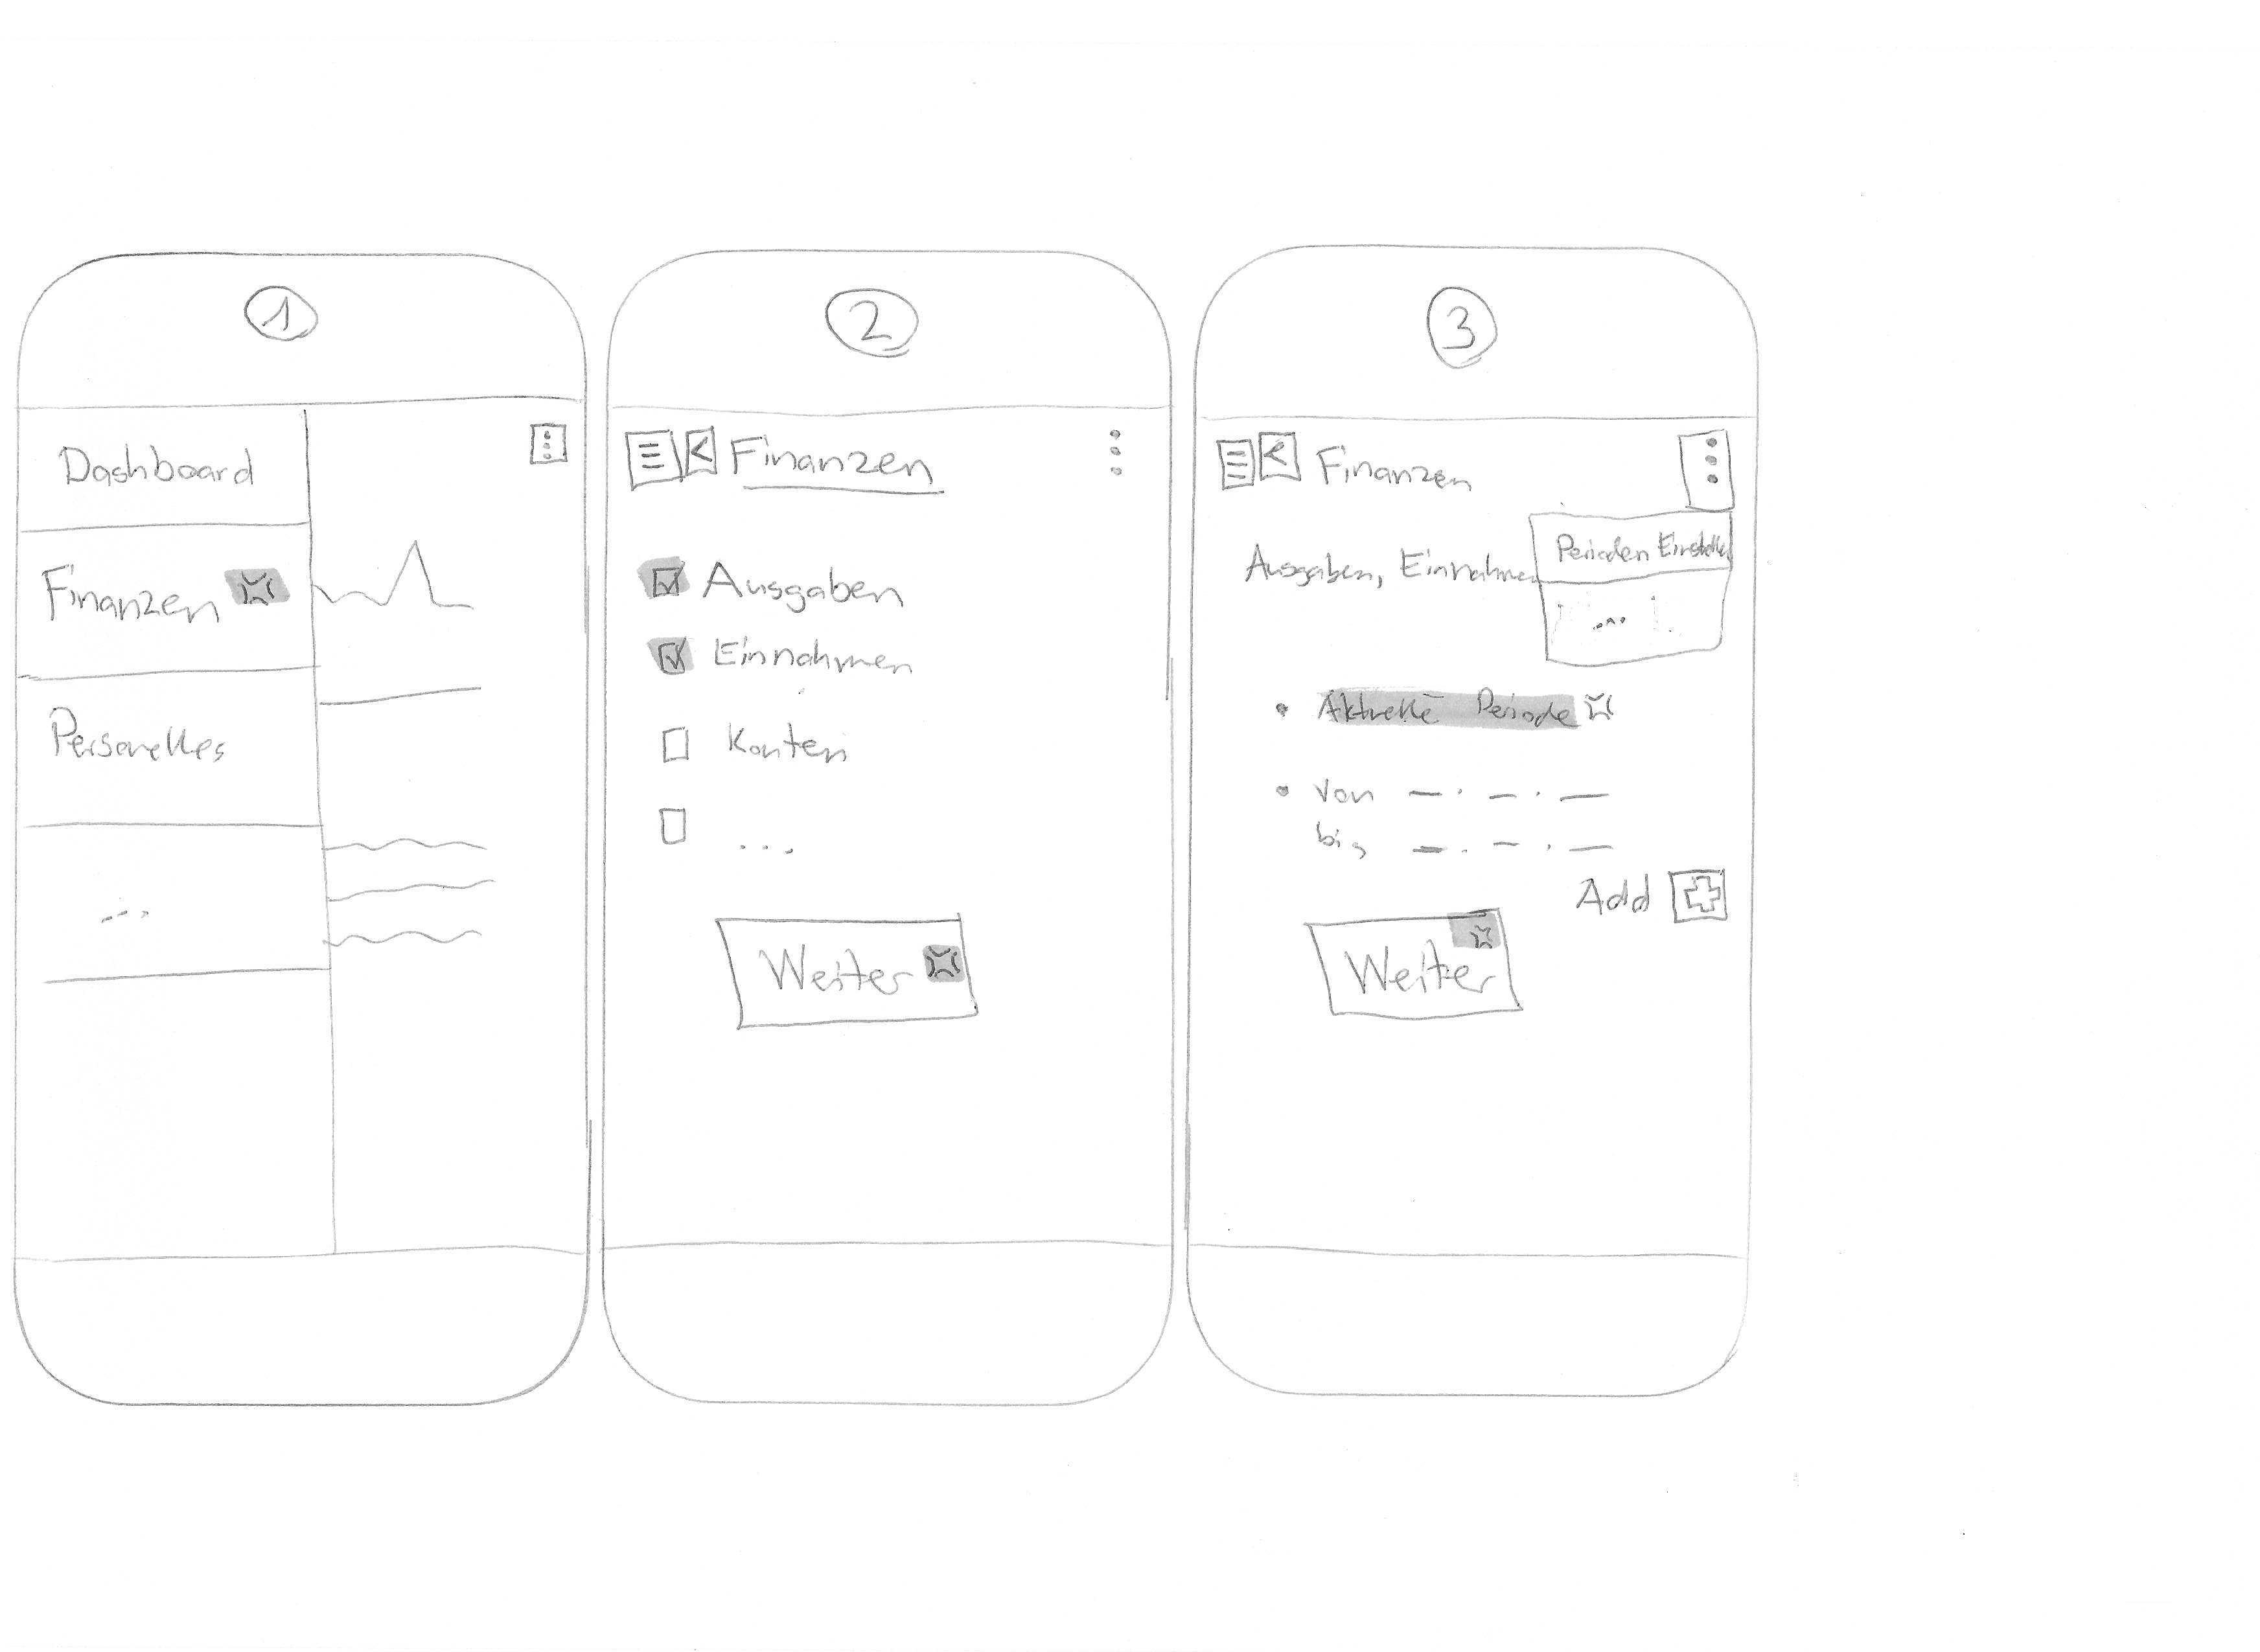 1
Dashboard
Finanzen
Personelles
...
2
Finanzen
Ausgaben
Einnahmen
Konten
...
Weiter
3
Finanzen
Perioden Einstellen
Ausgaben, Einnahmen
...
Aktuelle Periode
von
bis
Add
Weiter